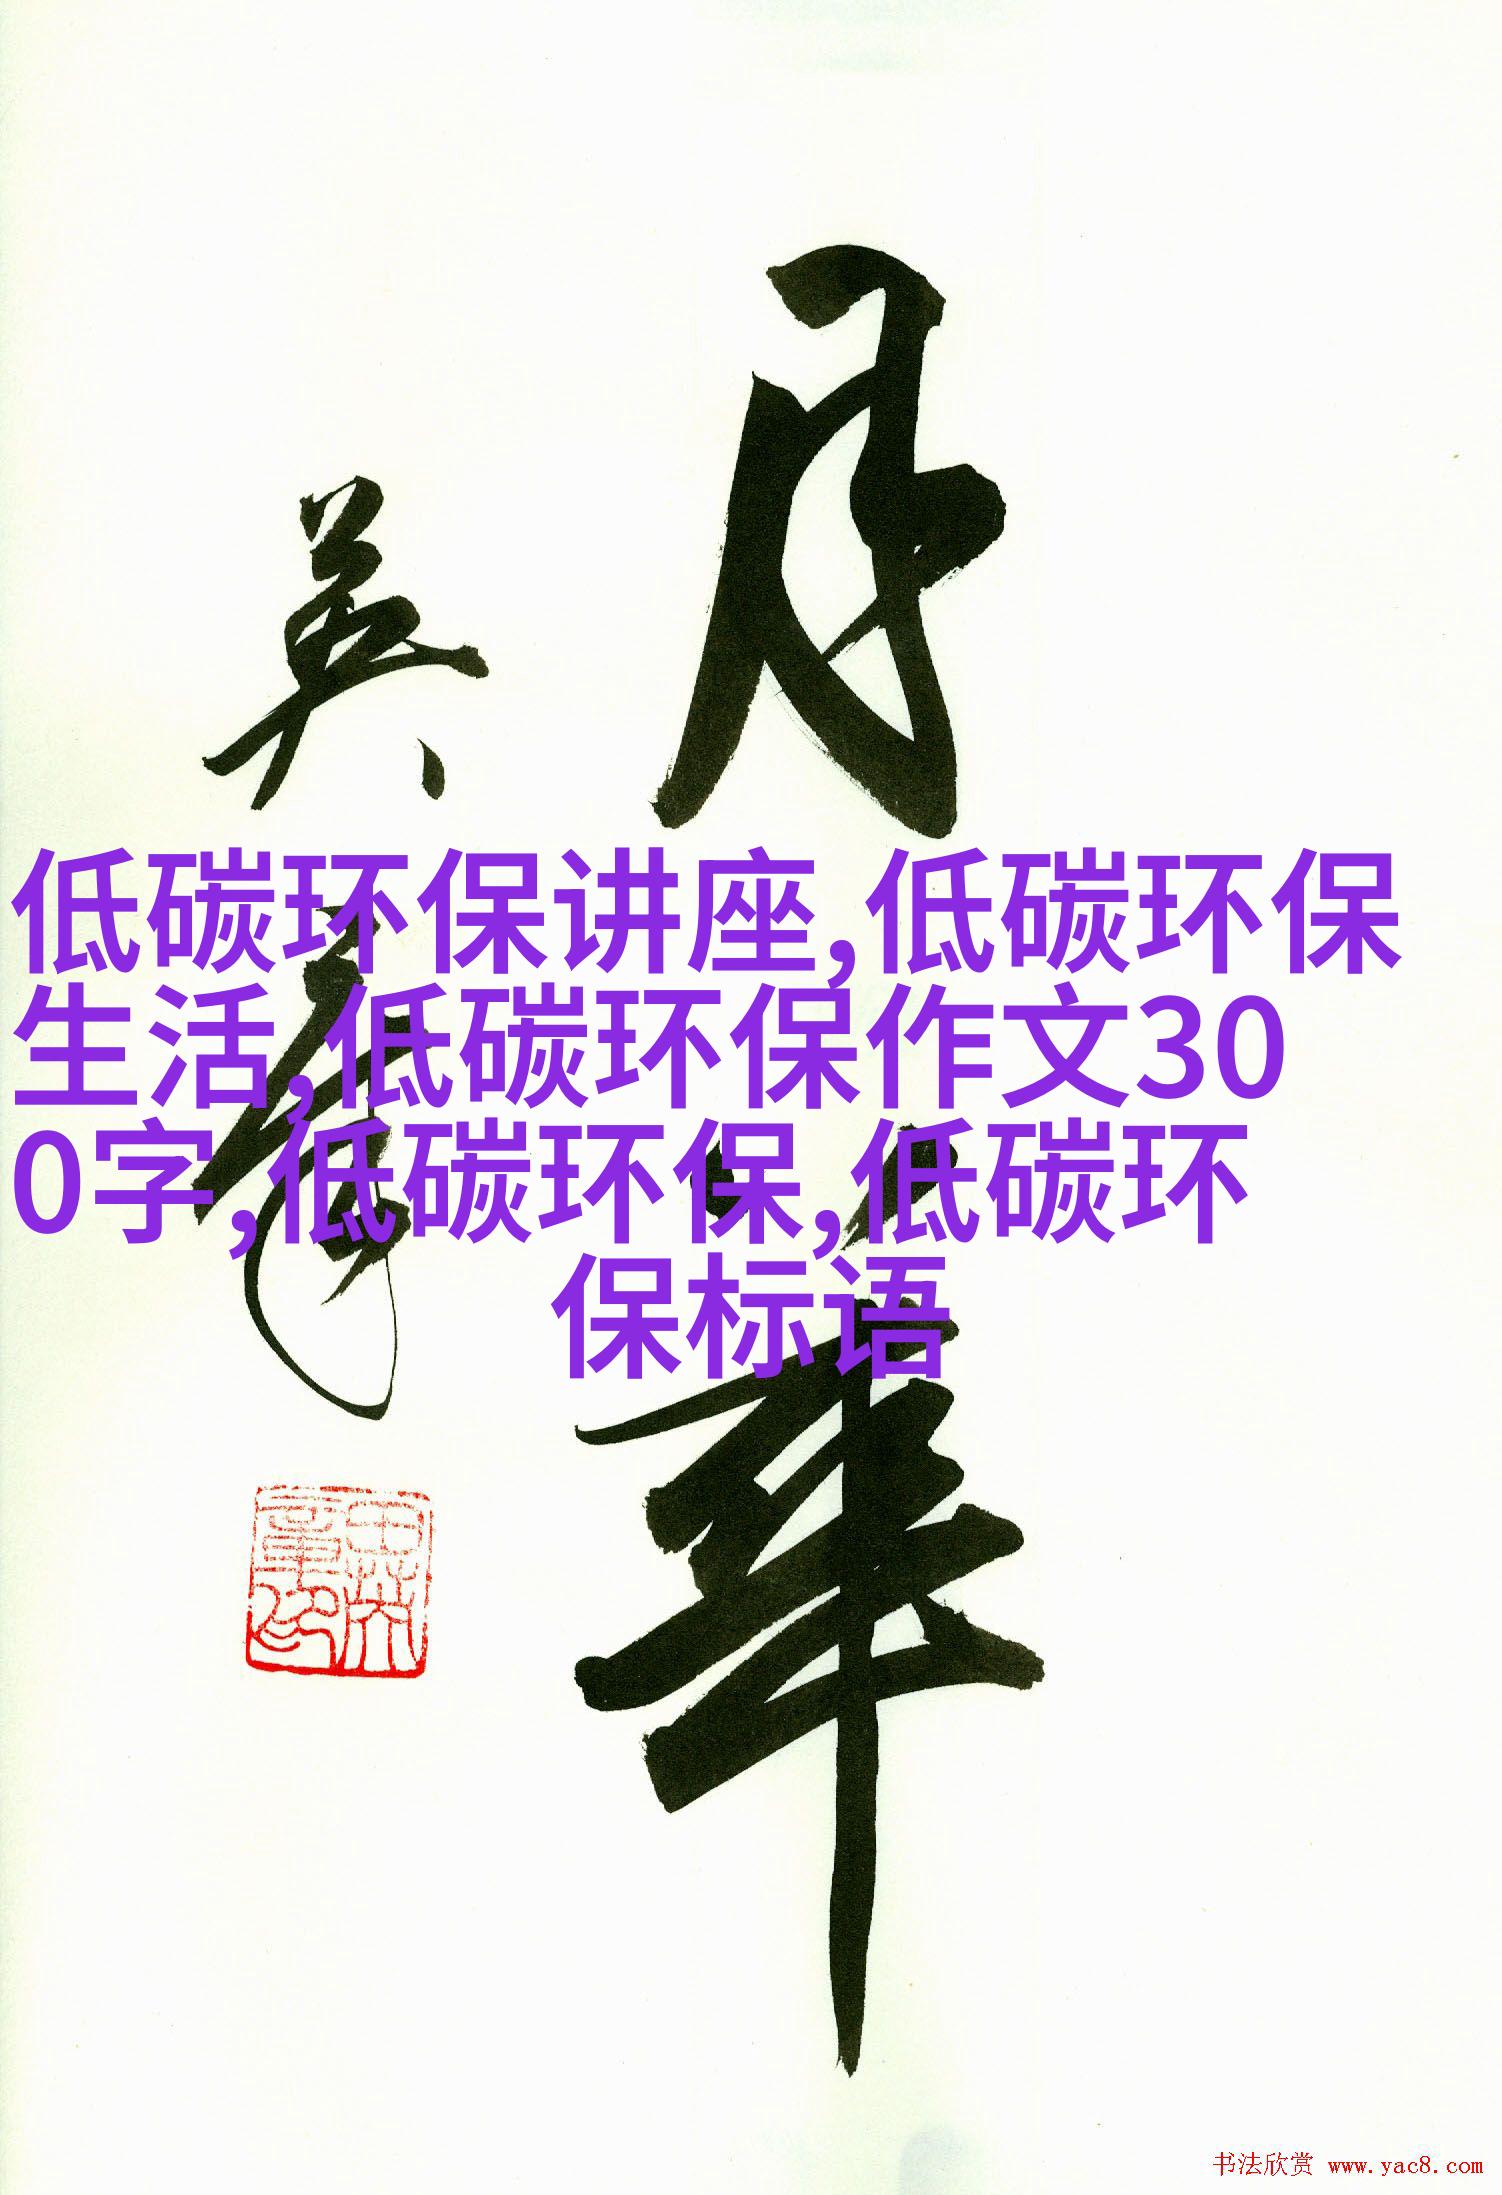 月华
英章
低碳环保讲座,低碳环保
生活,低碳环保作文30
0字,低碳环保,低碳环
保标语
书法欣赏 www.yac8.com